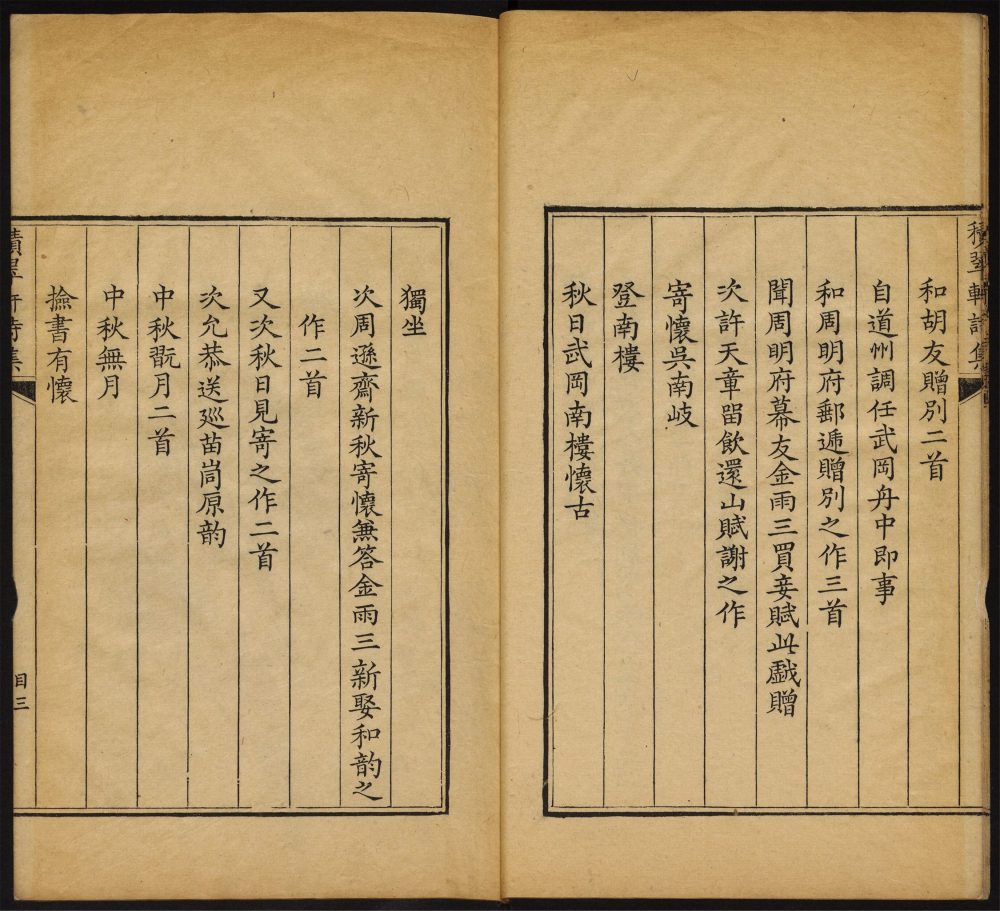 積翠軒詩集
和胡友贈別二首
自道州調任武岡舟中即事
和周明府郵遞贈別之作三首
聞周明府幕友金雨三買妾賦此戱贈
次許天章畱飲還山賦謝之作
寄懷吳南岐
登南樓
秋日武岡南樓懷古
獨坐
次周遜齋新秋寄懷兼答金雨三新娶和韵之
作二首
又次秋日見寄之作二首
次允恭送廵苗峝原韵
中秋翫月二首
中秋無月
撿書有懷
積翠軒詩集
目三